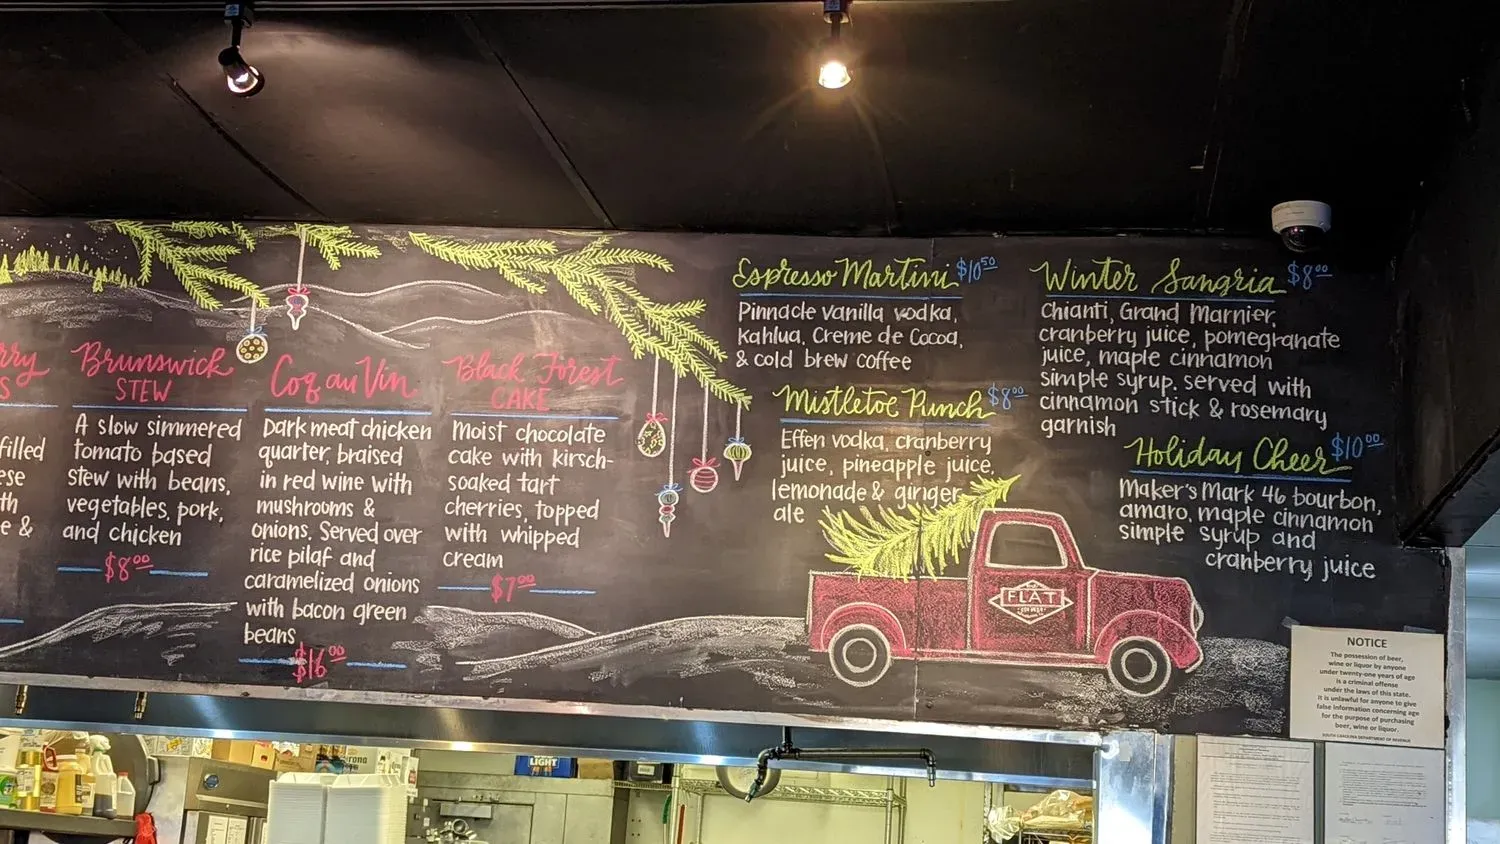 rry
s
filled
ese
th
e &
Brunswick
STEW
A slow simmered
tomato based
stew with beans,
vegetables, pork,
and chicken
$8⁰⁰
Coq au Vin
Dark meat chicken
quarter, braised
in red wine with
mushrooms &
onions. Served over
rice pilaf and
caramelized onions
with bacon green
beans
$16⁰⁰
Black Forest
CAKE
Moist chocolate
cake with kirsch-
soaked tart
cherries, topped
with whipped
cream
$7⁰⁰
Espresso Martini $10⁵⁰
Pinnacle vanilla vodka,
Kahlua, Creme de Cocoa,
& cold brew coffee
Mistletoe Punch $8⁰⁰
Effen vodka, cranberry
juice, pineapple juice,
lemonade & ginger
ale
Winter Sangria $8⁰⁰
Chianti, Grand Marnier,
cranberry juice, pomegranate
juice, maple cinnamon
simple syrup. served with
cinnamon stick & rosemary
garnish
Holiday Cheer $10⁰⁰
Maker's Mark 46 bourbon,
amaro, maple cinnamon
simple syrup and
cranberry juice
FLAT
NOTICE
The possession of beer,
wine or liquor by anyone
under twenty-one years of age
is a criminal offense
under the laws of this state.
It is unlawful for anyone to give
false information concerning age
for the purpose of purchasing
beer, wine or liquor.
SOUTH CAROLINA DEPARTMENT OF REVENUE
LIGHT